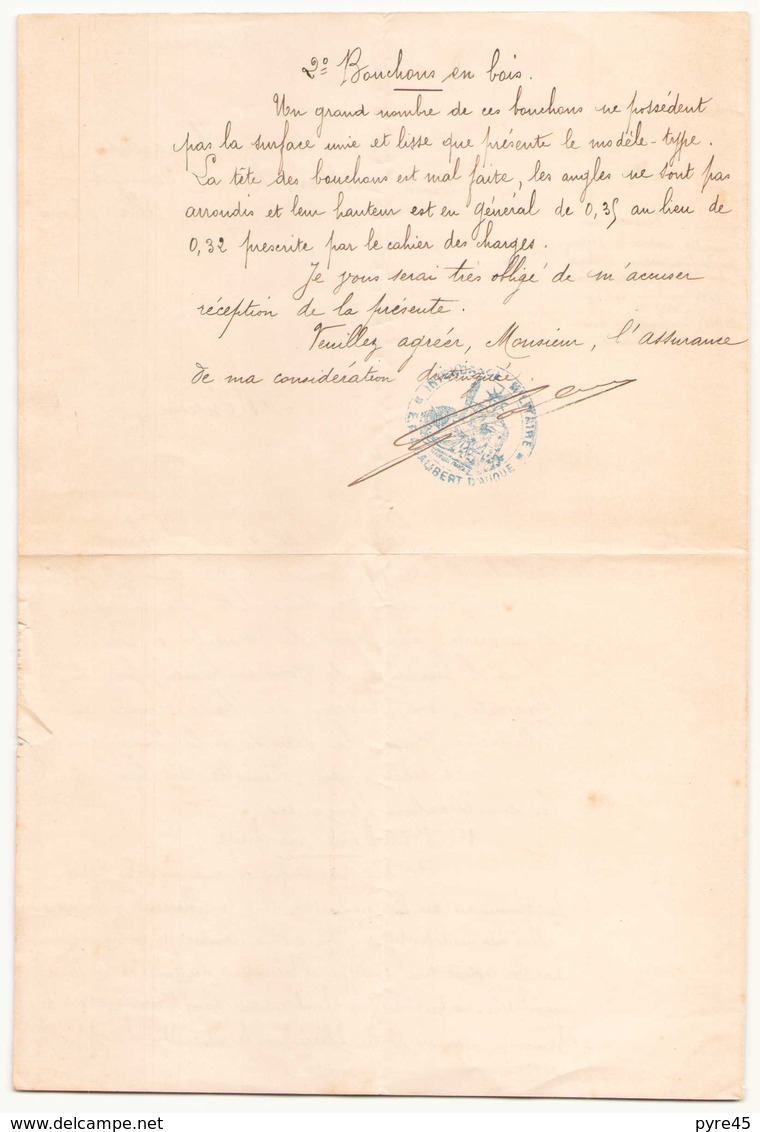 2º Bouchons en bois.
Un grand nombre de ces bouchons ne possèdent
pas la surface unie et lisse que présente le modèle-type.
La tête des bouchons est mal faite, les angles ne sont pas
arrondis et leur hauteur est en général de 0,35 au lieu de
0,32 prescrite par le cahier des charges.
Je vous serai très obligé de m'accuser
réception de la présente.
Veuillez agréer, Monsieur, l'assurance
de ma considération distinguée.
MILITAIRE
delcampe.net
pyre45